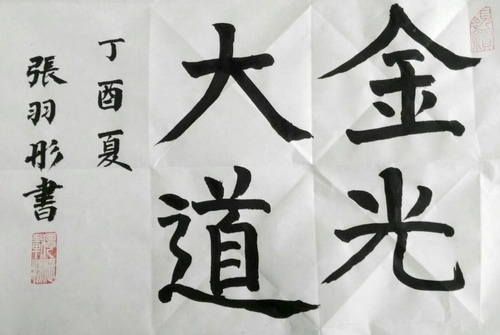 金光
大道
丁酉夏
張羽彤書